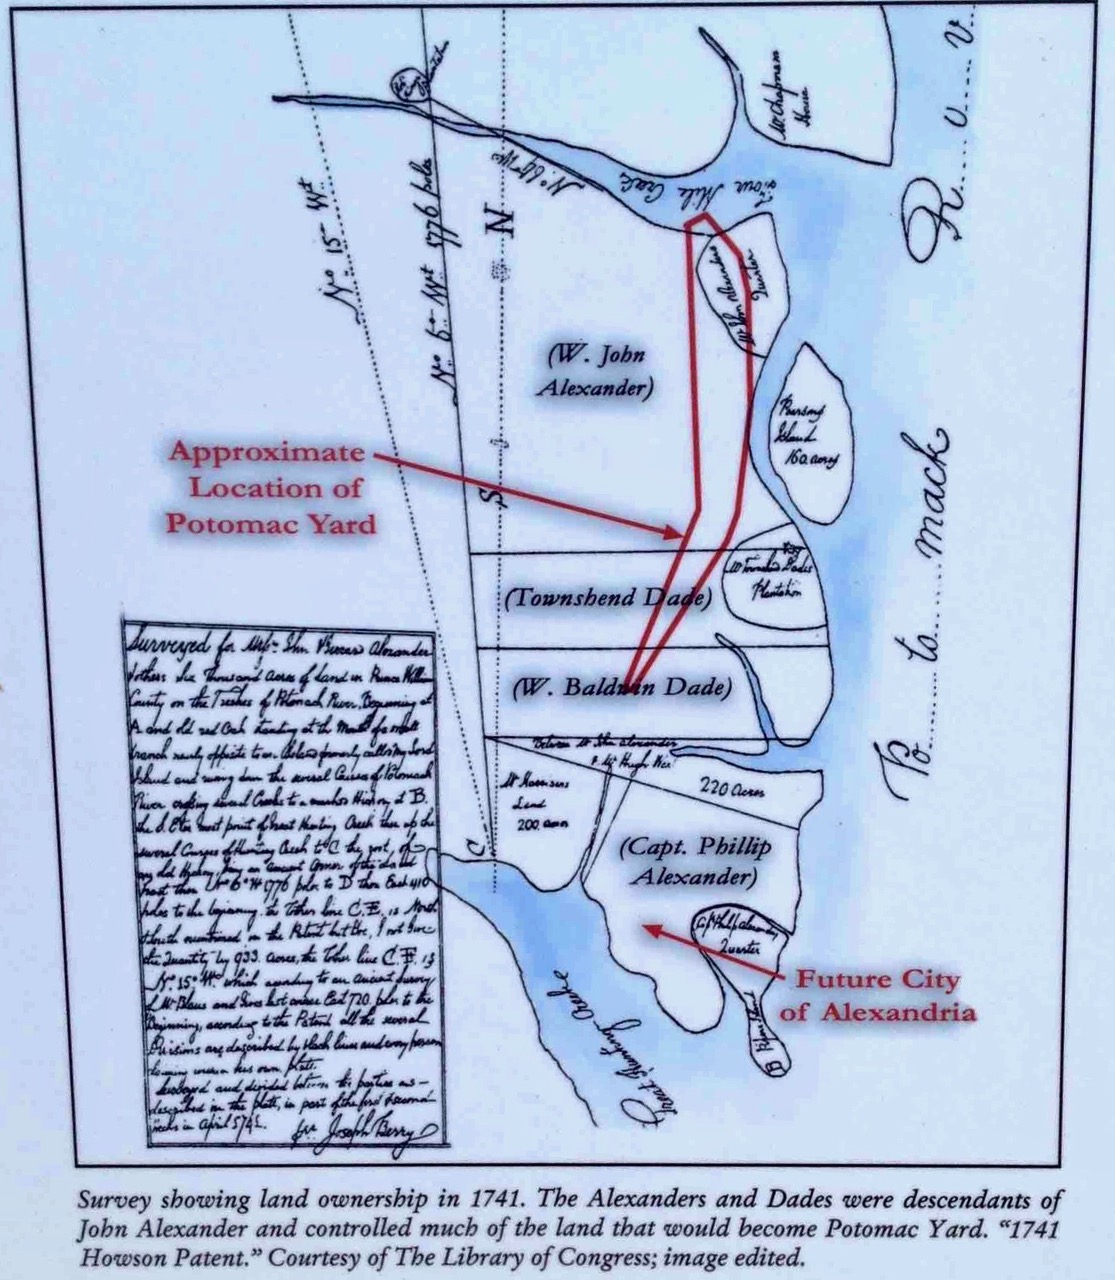 Mr Chapmans
House
R....U....V.
Four Mile Creek
No. 15 Wt
No. 6 Wt 1776 poles
N
Mr John Alexanders
Quarter
(W. John
Alexander)
Pearsons
Island
160 acres
Approximate
Location of
Potomac Yard
S
Mr Townshend Dades
Plantation
(Townshend Dade)
(W. Baldwin Dade)
Po....to....mack
Between Mr John Alexander
& Mr Hugh West
220 Acres
Mr Harrisons
Land
200 acres
C
(Capt. Phillip
Alexander)
Capt Philip Alexanders
Quarter
Future City
of Alexandria
B
Great Hunting Creeke
Surveyed for John Alexander
& others Six Thousand acres of Land in Prince William
County on the Freshes of Potomack River, Beginning at
A and old red Oak standing at the Mouth of a small
branch nearly opposite to an Island formerly called My Lord
Island and runing down the several Courses of Potomack
River crossing several Creeks to a Hickory at B.
the S. E. most point of Great Hunting Creek then up the
several Courses of Hunting Creek to C
an old Hickory being an ancient Corner of the
Land then No 6 Wt 1776 poles to D then East 410
poles to the beginning. the other line C. E. is North
mentioned in the Patent but
the Quantity by 933. acres, the other line C. F. is
No. 15 Wt. which according to an ancient Survey
East 720. poles to the
Beginning, according to the Patent all the several
Divisions are described by black lines and every person
name his own plott.
Surveyed and divided between the parties as
described in the plott, in part of the first & second
weeks in April 1741.
Joseph Berry
Survey showing land ownership in 1741. The Alexanders and Dades were descendants of
John Alexander and controlled much of the land that would become Potomac Yard. “1741
Howson Patent.” Courtesy of The Library of Congress; image edited.